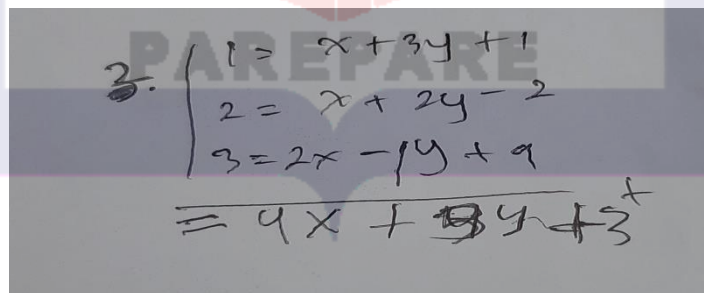 PAREPARE
3. 1 = x + 3y + 1
2 = x + 2y - 2
3 = 2x - 1y + 9
= 4x + y + 3 +